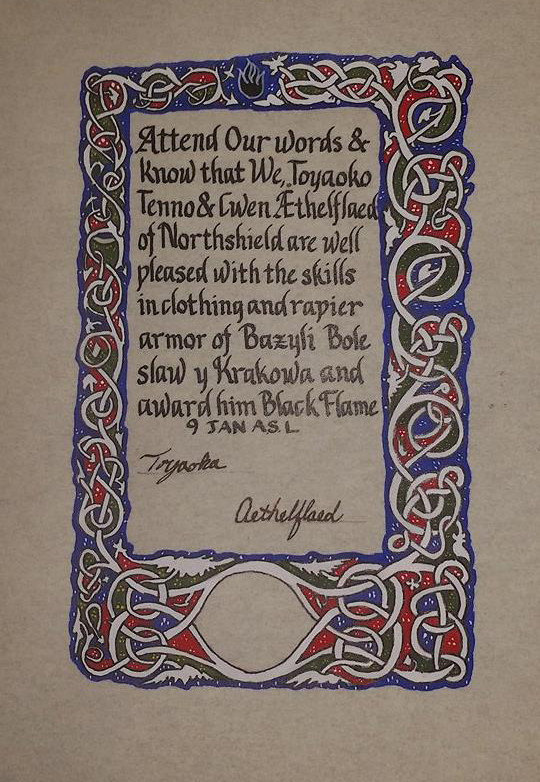 Attend Our words &
Know that We, Toyaoko
Tenno & Cwen Æthelflaed
of Northshield are well
pleased with the skills
in clothing and rapier
armor of Bazyli Bole
slaw y Krakowa and
award him Black Flame
9 JAN A.S. L
Toyaoka
Aethelflaed